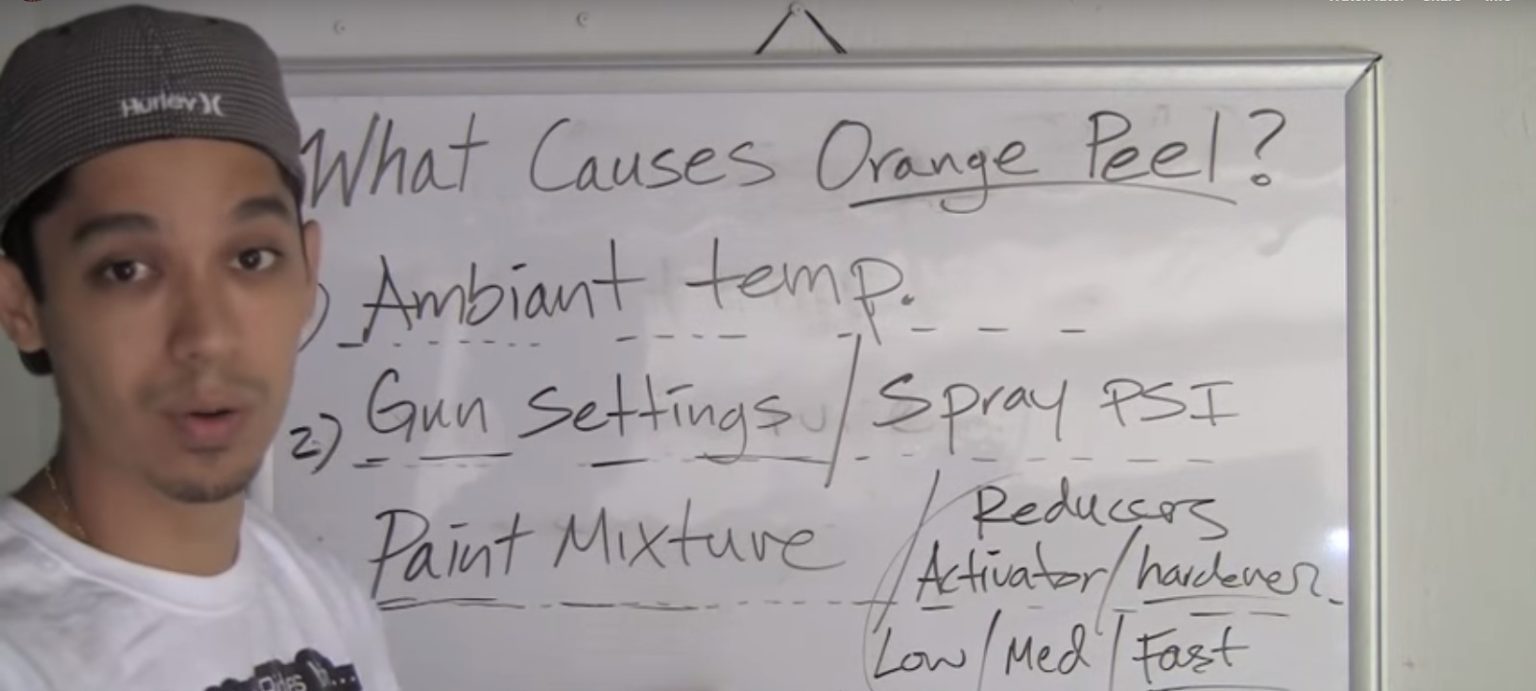 Hurley
What Causes Orange Peel?
) Ambiant temp.
2) Gun Settings / Spray PSI
Paint Mixture / Reducers
Activator / hardener
Low / Med / Fast